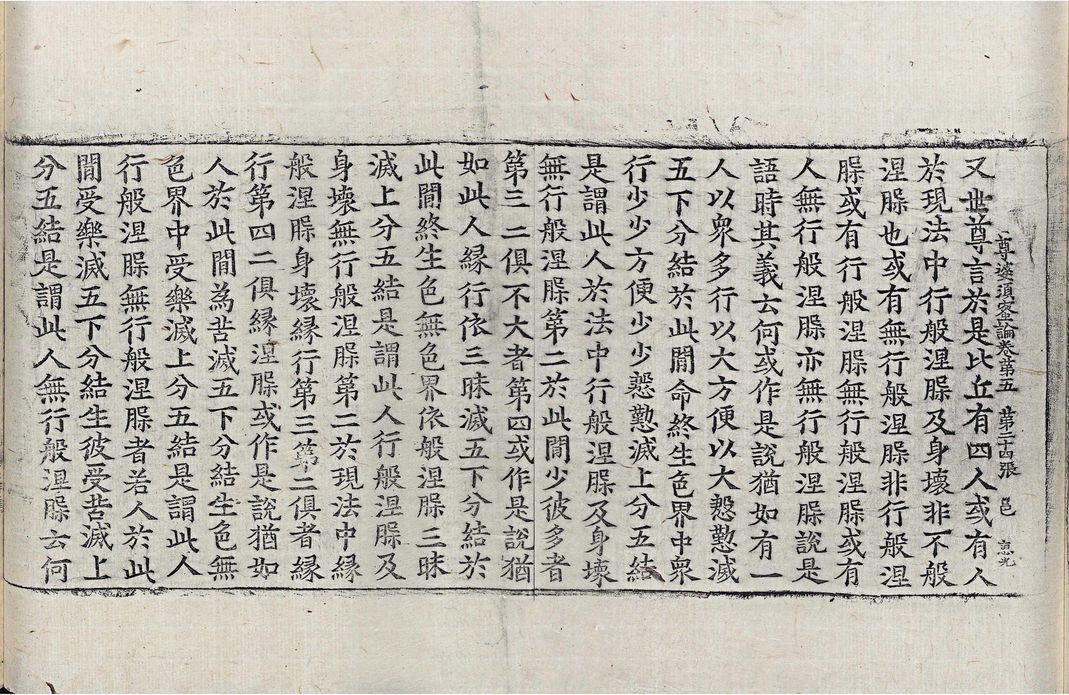 尊婆須蜜論卷第五 第二十四張 邑
又世尊言於是比丘有四人或有人
於現法中行般涅槃及身壞非不般
涅槃也或有無行般涅槃非行般涅
槃或有行般涅槃無行般涅槃或有
人無行般涅槃亦無行般涅槃說是
語時其義云何或作是說猶如有一
人以衆多行以大方便以大慇懃滅
五下分結於此閒命終生色界中衆
行少少方便少少慇懃滅上分五結
是謂此人於法中行般涅槃及身壞
無行般涅槃第二於此閒少彼多者
第三二俱不大者第四或作是說猶
如此人緣行依三昧滅五下分結於
此閒終生色無色界依般涅槃三昧
滅上分五結是謂此人行般涅槃及
身壞無行般涅槃第二於現法中緣
般涅槃身壞緣行第三第二俱者緣
行第四二俱緣涅槃或作是說猶如
人於此閒為苦滅五下分結生色無
色界中受樂滅上分五結是謂此人
行般涅槃無行般涅槃者若人於此
閒受樂滅五下分結生彼受苦滅上
分五結是謂此人無行般涅槃云何